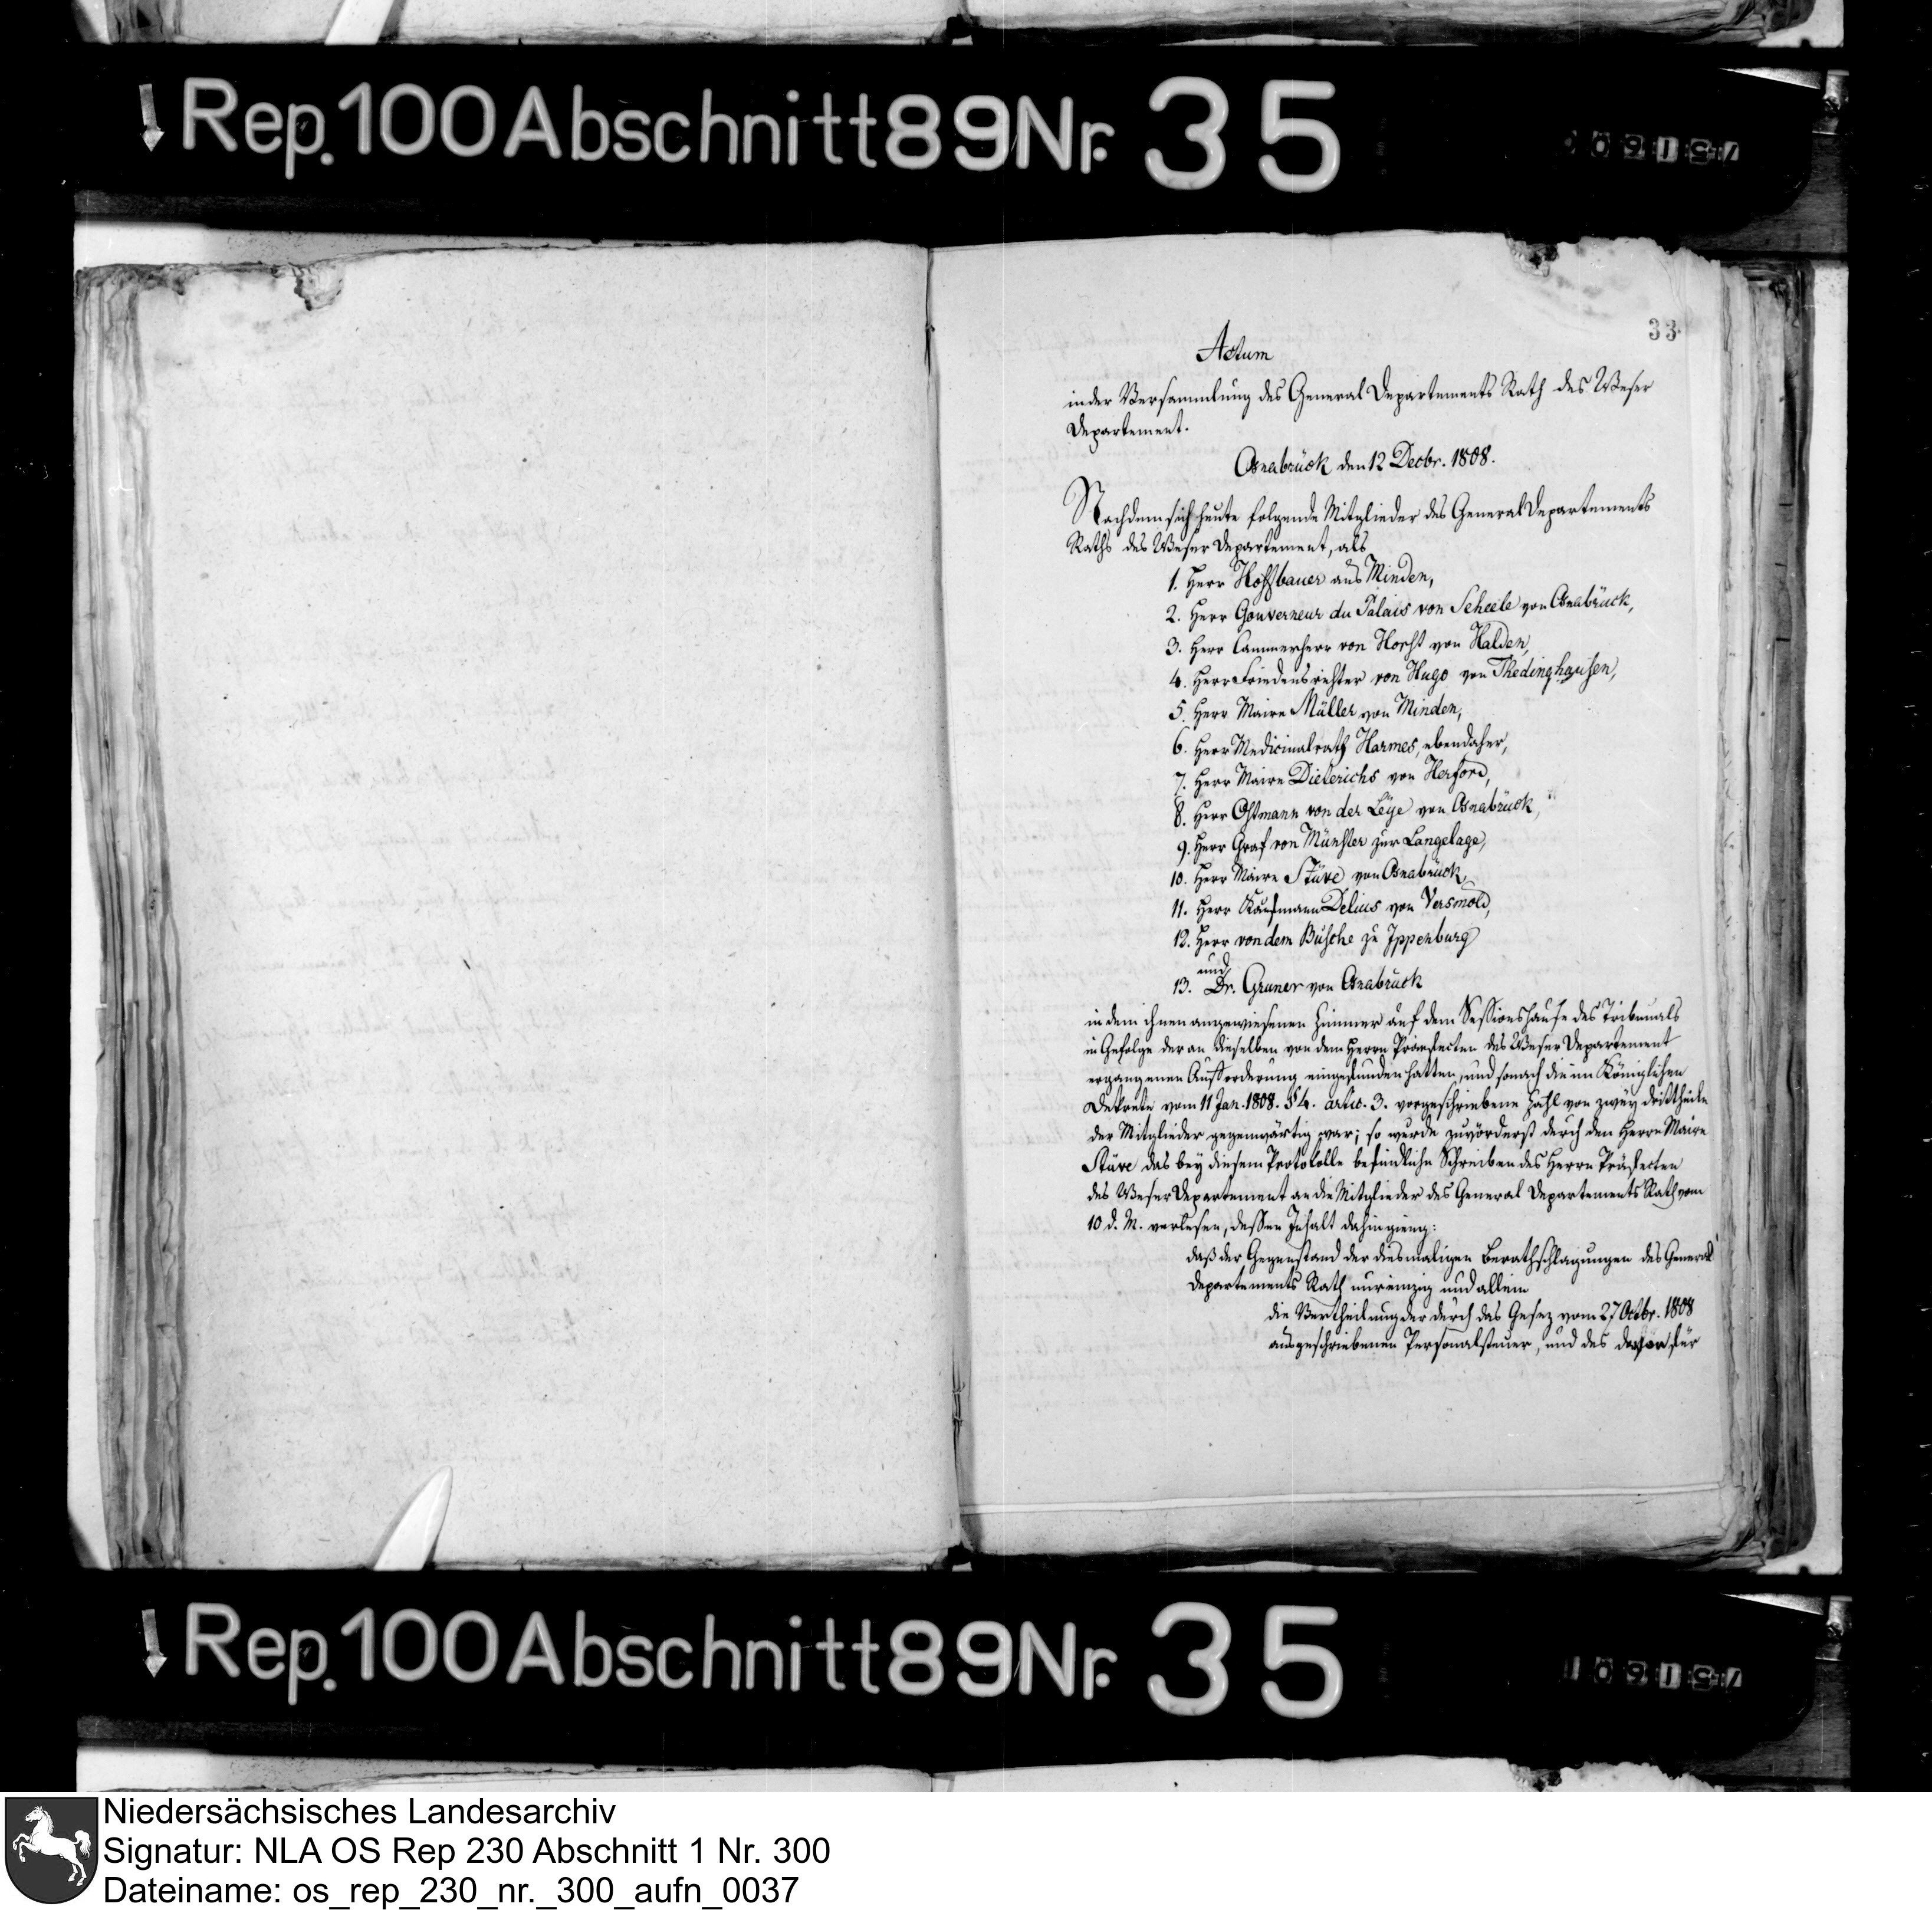 Rep. 100 Abschnitt 89 Nr. 35
33
Actum
in der Versammlung des General Departements Rath des Weser
Departement.
Osnabrück den 12 Decbr. 1808.
Nachdem sich heute folgende Mitglieder des General Departements
Raths des Weser Departement, als
1. Herr Hoffbauer aus Minden,
2. Herr Gouverneur du Palais von Scheele von Osnabrück,
3. Herr Cammerherr von Horst von Halden,
4. Herr Friedensrichter von Hugo von Thedinghausen,
5. Herr Maire Müller von Minden,
6. Herr Medicinalrath Harmes, ebendaher,
7. Herr Maire Dieterichs von Herford,
8. Herr Ostmann von der Leye von Osnabrück,
9. Herr Graf von Münster zur Langelage,
10. Herr Maire Stüve von Osnabrück,
11. Herr Kaufmann Delius von Versmold,
12. Herr von dem Busche zu Ippenburg
und
13. Dr. Gruner von Osnabrück
in dem ihnen angewiesenen Zimmer auf dem Sessionshause des Tribunals
in Gefolge der an dieselben von dem Herrn Präfecten des Weser Departement
ergangenen Aufforderung eingefunden hatten, und sonach die im Königlichen
Dekrete vom 11 Jan. 1808. §4. artic. 3. vorgeschriebene Zahl von zwey drittheile
der Mitglieder gegenwärtig war; so wurde zuvörderst durch den Herrn Maire
Stüve das bey diesem Protokolle befindliche Schreiben des Herrn Präfecten
des Weser Departement an die Mitglieder des General Departements Rath vom
10 d. M. verlesen, dessen Inhalt dahin gieng:
daß der Gegenstand der diesmaligen Berathschlagungen des General
Departements Rath nur einzig und allein
die Vertheilung der durch das Gesez vom 27 Octbr. 1808
ausgeschriebenen Personalsteuer, und des für
Rep. 100 Abschnitt 89 Nr. 35
Niedersächsisches Landesarchiv
Signatur: NLA OS Rep 230 Abschnitt 1 Nr. 300
Dateiname: os_rep_230_nr._300_aufn_0037